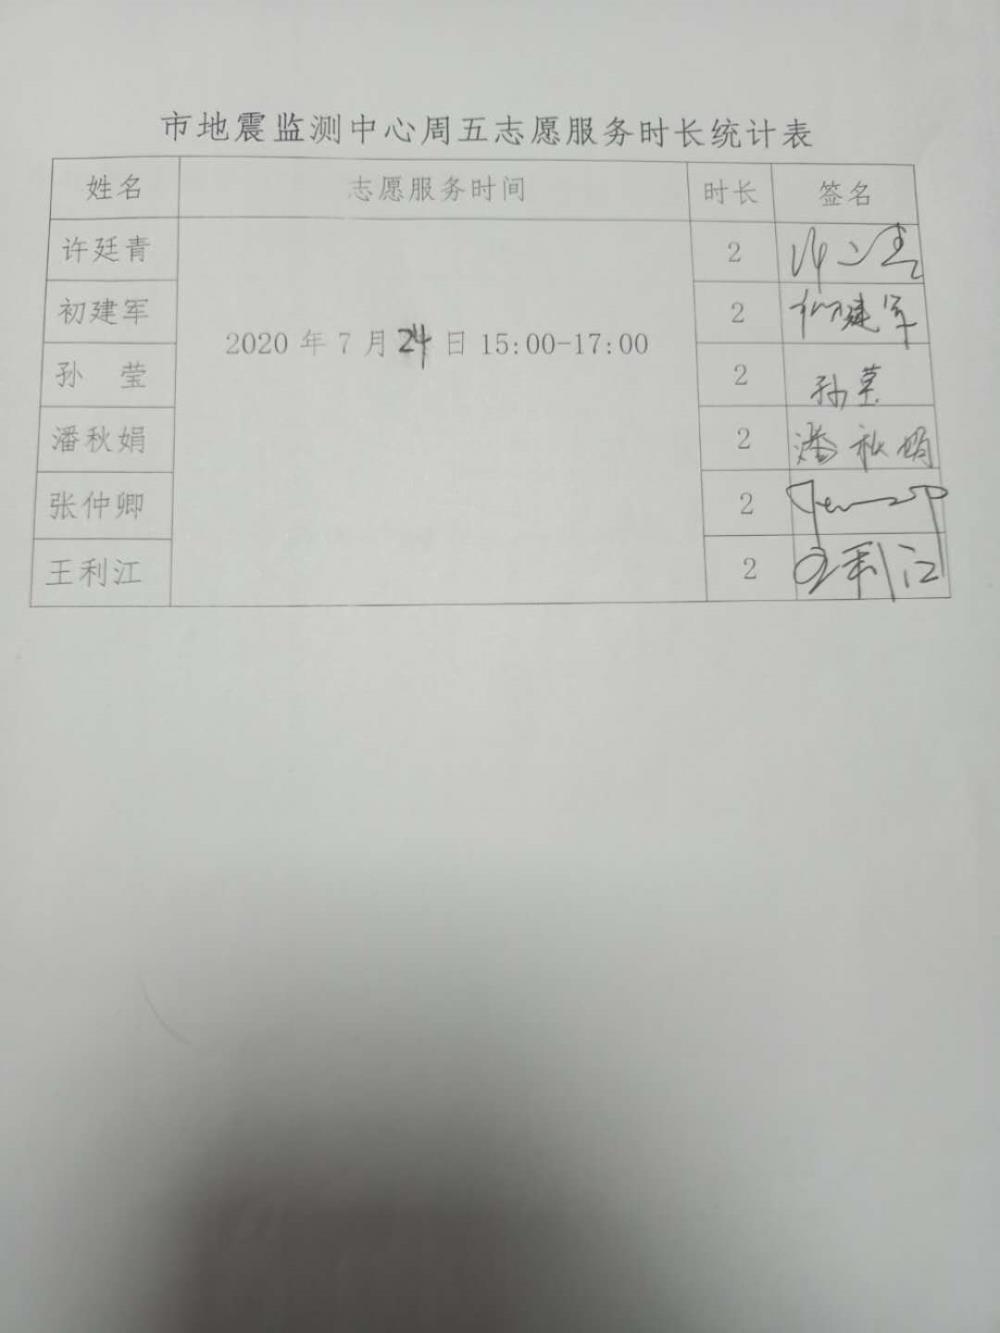 市地震监测中心周五志愿服务时长统计表
姓名 志愿服务时间 时长 签名
许廷青 2
初建军 2 初建军
2020 年 7 月 24 日 15:00-17:00
孙 莹 2 孙莹
潘秋娟 2 潘秋娟
张仲卿 2
王利江 2 王利江